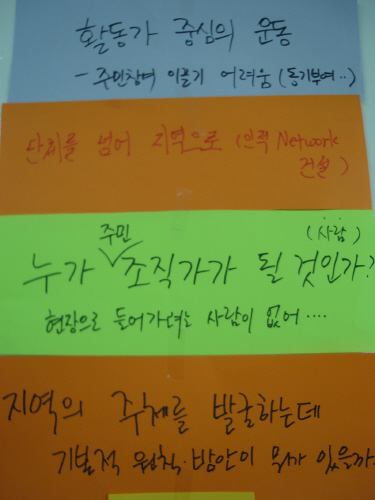 활동가 중심의 운동
- 주민참여 이끌기 어려움 (동기부여..)
단체를 넘어 지역으로 (인적 Network
건설)
(사람)
누가 주민 조직가가 될 것인가?
현장으로 들어가려는 사람이 없어....
지역의 주체를 발굴하는데
기본적 원칙·방안이 뭐가 있을까